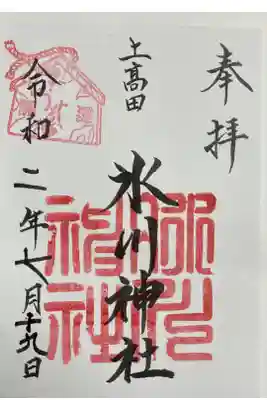 奉拝
上高田
氷川神社
令和二年七月十九日
氷川神社